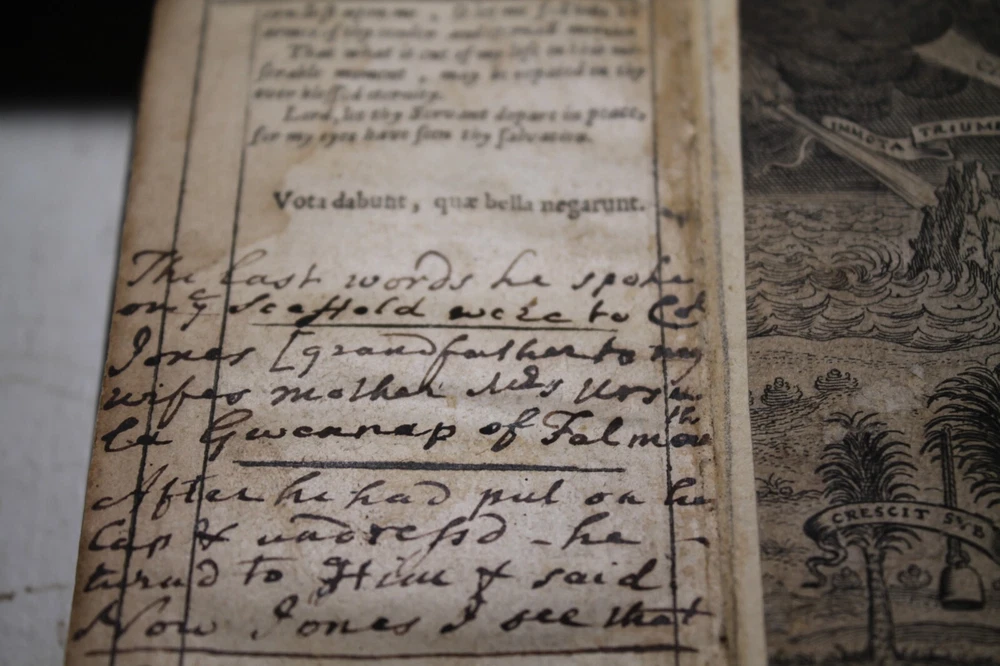 That what is out of my
moment, may be repaired in thy
ever blessed eternity.
Lord, let thy Servant depart in peace,
for my eyes have seen thy salvation.
Vota dabunt, quæ bella negarunt.
The last words he spoke
on yͤ scaffold were to Col
Jones [grandfather to my
wifes mother Mrs Ursu
la Gwennap of Falmouth
After he had put on his
Cap & undressd - he -
turnd to Him & said
Now Jones I see that
IMMOTA TRIUMP
CRESCIT SVB